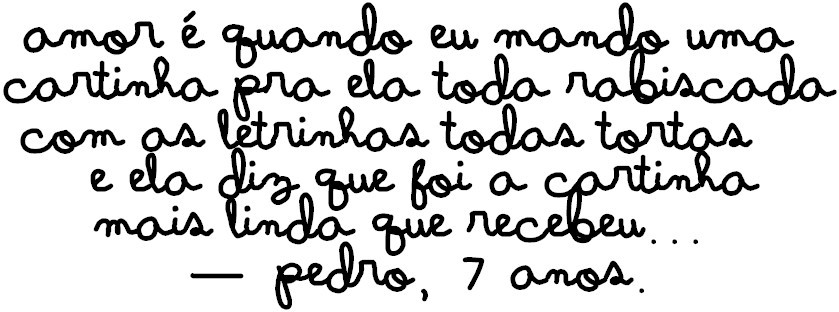 amor é quando eu mando uma
cartinha pra ela toda rabiscada
com as letrinhas todas tortas
e ela diz que foi a cartinha
mais linda que recebeu...
— pedro, 7 anos.